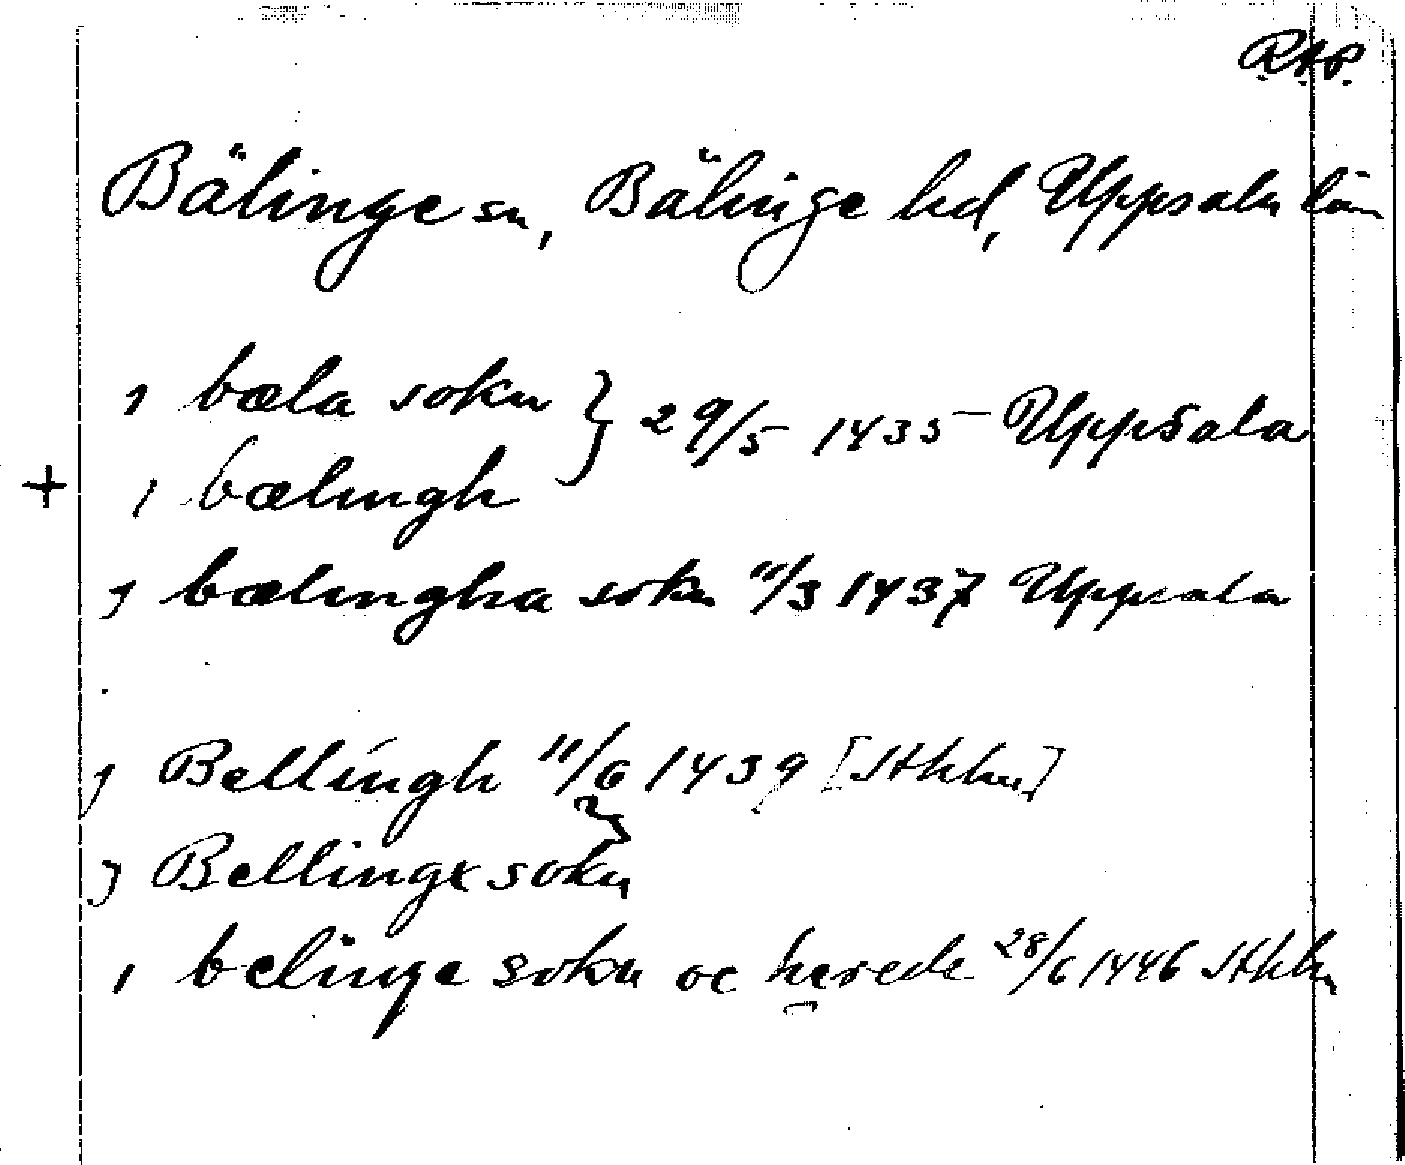 R.A.P.
Bälinge sn, Bälinge hd, Uppsala län
ı bæla sokn } 29/5 1435 Uppsala
+ ı bælingh
j bælingha sokn 11/3 1437 Uppsala
j Bellingh 11/6 1439 [Sthlm]
j Bellinge sokn
ı belinge sokn oc herede 28/6 1446 Sthlm